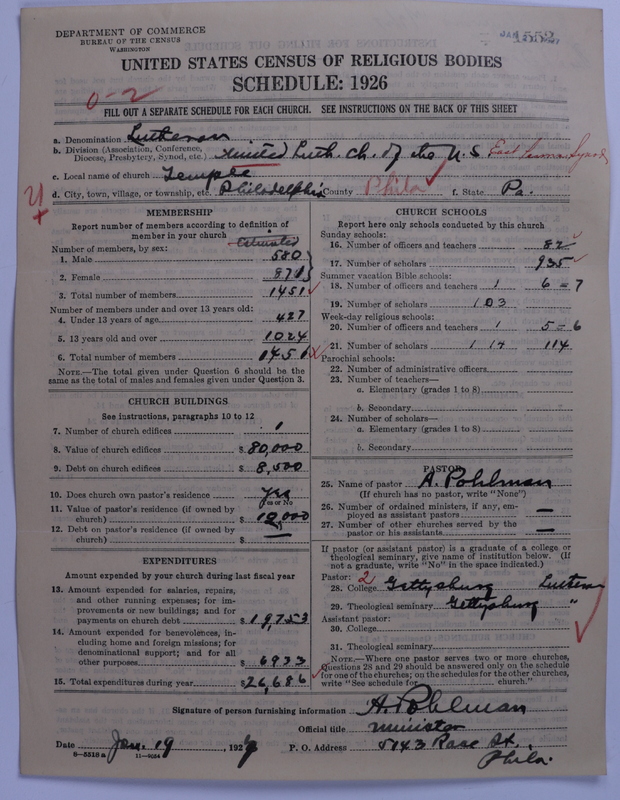 DEPARTMENT OF COMMERCE
BUREAU OF THE CENSUS
WASHINGTON
UNITED STATES CENSUS OF RELIGIOUS BODIES
SCHEDULE: 1926
0-2
FILL OUT A SEPARATE SCHEDULE FOR EACH CHURCH. SEE INSTRUCTIONS ON THE BACK OF THIS SHEET
a. Denomination Lutheran
b. Division (Association, Conference, Diocese, Presbytery, Synod, etc.) United Luth. Ch. of the U.S East Pennsylvania
c. Local name of church Temple
d. City, town, village, or township, etc. Philadelphia County Phila f. State Pa.
MEMBERSHIP
Report number of members according to definition of
member in your church
estimated
Number of members, by sex:
1. Male 580
2. Female 871
3. Total number of members 1451
Number of members under and over 13 years old:
4. Under 13 years of age 427
5. 13 years old and over 1024
6. Total number of members 1451
NOTE.—The total given under Question 6 should be
same as the total of males and females given under Question 3.
CHURCH BUILDINGS
See instructions, paragraphs 10 to 12
7. Number of church edifices 1
8. Value of church edifices $ 80,000
9. Debt on church edifices $ 8,500
10. Does church own pastor's residence Yes
Yes or No
11. Value of pastor's residence (if owned by
church) $ 10,000
12. Debt on pastor's residence (if owned by
church) $ —
EXPENDITURES
Amount expended by your church during last fiscal year
13. Amount expended for salaries, repairs,
and other running expenses; for im-
provements or new buildings; and for
payments on church debt $ 19,753
14. Amount expended for benevolences, in-
cluding home and foreign missions; for
denominational support; and for all
other purposes $ 6933
15. Total expenditures during year $ 26,686
CHURCH SCHOOLS
Report here only schools conducted by this church
Sunday schools:
16. Number of officers and teachers 82
17. Number of scholars 935
Summer vacation Bible schools:
18. Number of officers and teachers 1 6 = 7
19. Number of scholars 103
Week-day religious schools:
20. Number of officers and teachers 1 5 = 6
21. Number of scholars 114
Parochial schools:
22. Number of administrative officers
23. Number of teachers—
a. Elementary (grades 1 to 8)
b. Secondary
24. Number of scholars—
a. Elementary (grades 1 to 8)
b. Secondary
PASTOR
25. Name of pastor A. Pohlman
(If church has no pastor, write "None")
26. Number of ordained ministers, if any, em-
ployed as assistant pastors —
27. Number of other churches served by the
pastor or his assistants —
If pastor (or assistant pastor) is a graduate of a college or
theological seminary, give name of institution below. (If
not a graduate, write "No" in the space indicated.)
Pastor: 2
28. College Gettysburg Lutheran
29. Theological seminary Gettysburg "
Assistant pastor:
30. College
31. Theological seminary
NOTE.—Where one pastor serves two or more churches,
Questions 28 and 29 should be answered only on the schedule
for one of the churches; on the schedules for the other churches,
write "See schedule for church."
Signature of person furnishing information A. Pohlman
Official title Minister
Date Jan. 19, 1927 P. O. Address 5143 Race St.
Phila.
8—5518 a 11—9054